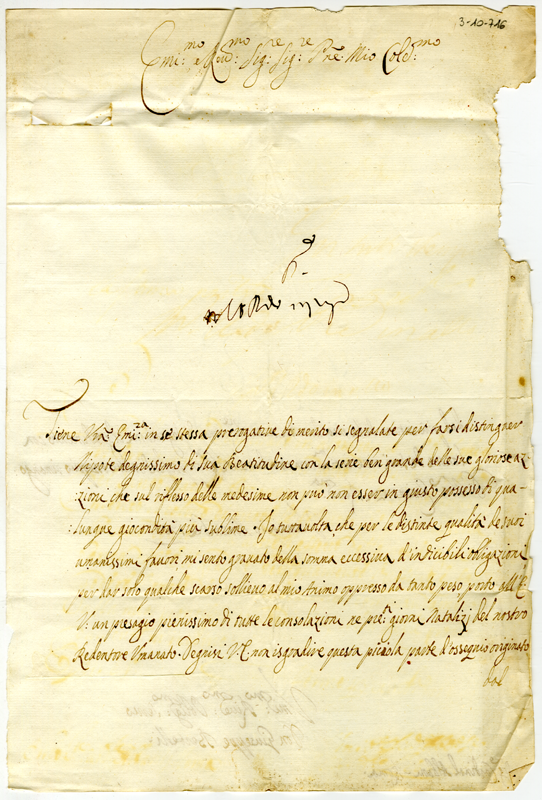 3-10-716
Emi:mo e Rev:mo Sig:re Sig:re Pne Mio Col:mo
Tiene Vra Emi:za in se stessa prerogative di merito si segnalate per farsi distinguer
Nipote degnissimo di Sua Beatitudine con la serie ben grande delle sue gloriose az-
:zioni, che sul riflesso delle medesime non può non esser in giusto possesso di qua-
:lunque giocondità più sublime. Io tuttavolta, che per le distinte qualità de suoi
umanissimi favori mi sento gravato della somma eccessiva d'indicibili obligazioni
per dar solo qualche scarso sollievo al mio Animo oppresso da tanto peso porto all'E.
V. un presagio pienissimo di tutte le consolazioni ne giorni Natalizj del nostro
Redentore Umanato. Degnisi V.E. non isgradire questa picciola parte d'ossequio originato
dal